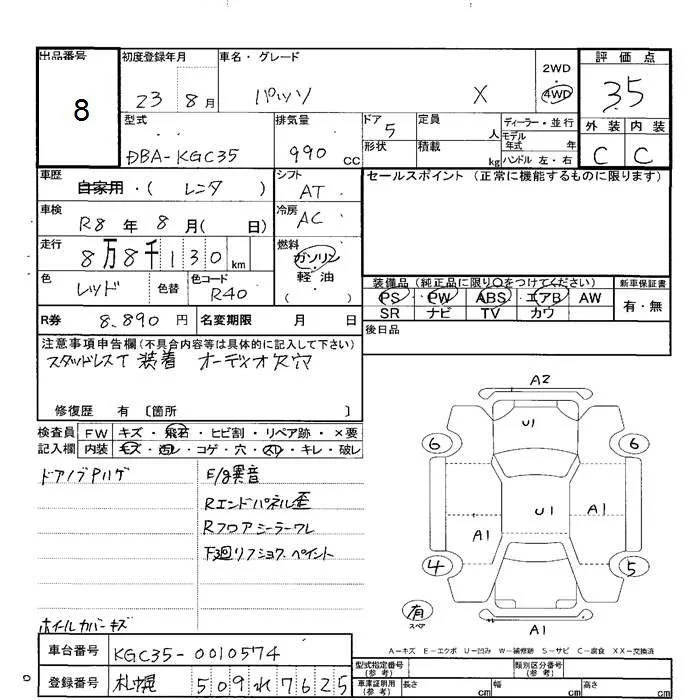 出品番号 初度登録年月 車名・グレード 2WD 評価点
8 23 8月 パッソ X 4WD 35
型式 排気量 ドア 5 定員 人 ディーラー・並行 外装 内装
DBA-KGC35 990 cc 形状 積載 kg モデル年式 年 C C
ハンドル 左・右
車歴 自家用・( レンタ ) シフト AT セールスポイント (正常に機能するものに限ります)
車検 R8 年 8 月( 日) 冷房 AC
走行 8万8千130 km 燃料 ガソリン
軽油
色 レッド 色替 色コード R40 装備品 (純正品に限り○をつけてください) 新車保証書
PS PW ABS エアB AW 有・無
SR ナビ TV カワ
R券 8,890 円 名変期限 月 日 後日品
注意事項申告欄(不具合内容等は具体的に記入して下さい)
スタッドレスT 装着 オーディオ欠穴
修復歴 有 〔箇所 〕
検査員 FW キズ・飛石・ヒビ割・リペア跡・×要
記入欄 内装 キズ・ ・コゲ・穴・ ・キレ・破レ
ドアノブPハゲ E/g異音
Rエンドパネル歪
Rフロアシーラーワレ
下廻リフショク ペイント
ホイールカバーキズ
A2
U1
6 6
U1 A1
A1
4 5
有
スペア
A1
A-キズ E-エクボ U-凹み W-補修跡 S-サビ C-腐食 XX-交換済
車台番号 KGC35-0010574
登録番号 札幌 509 れ 7625
型式指定番号(参考) 類別区分番号(参考)
車庫証明用(参考) 長さ cm 幅 cm 高さ cm